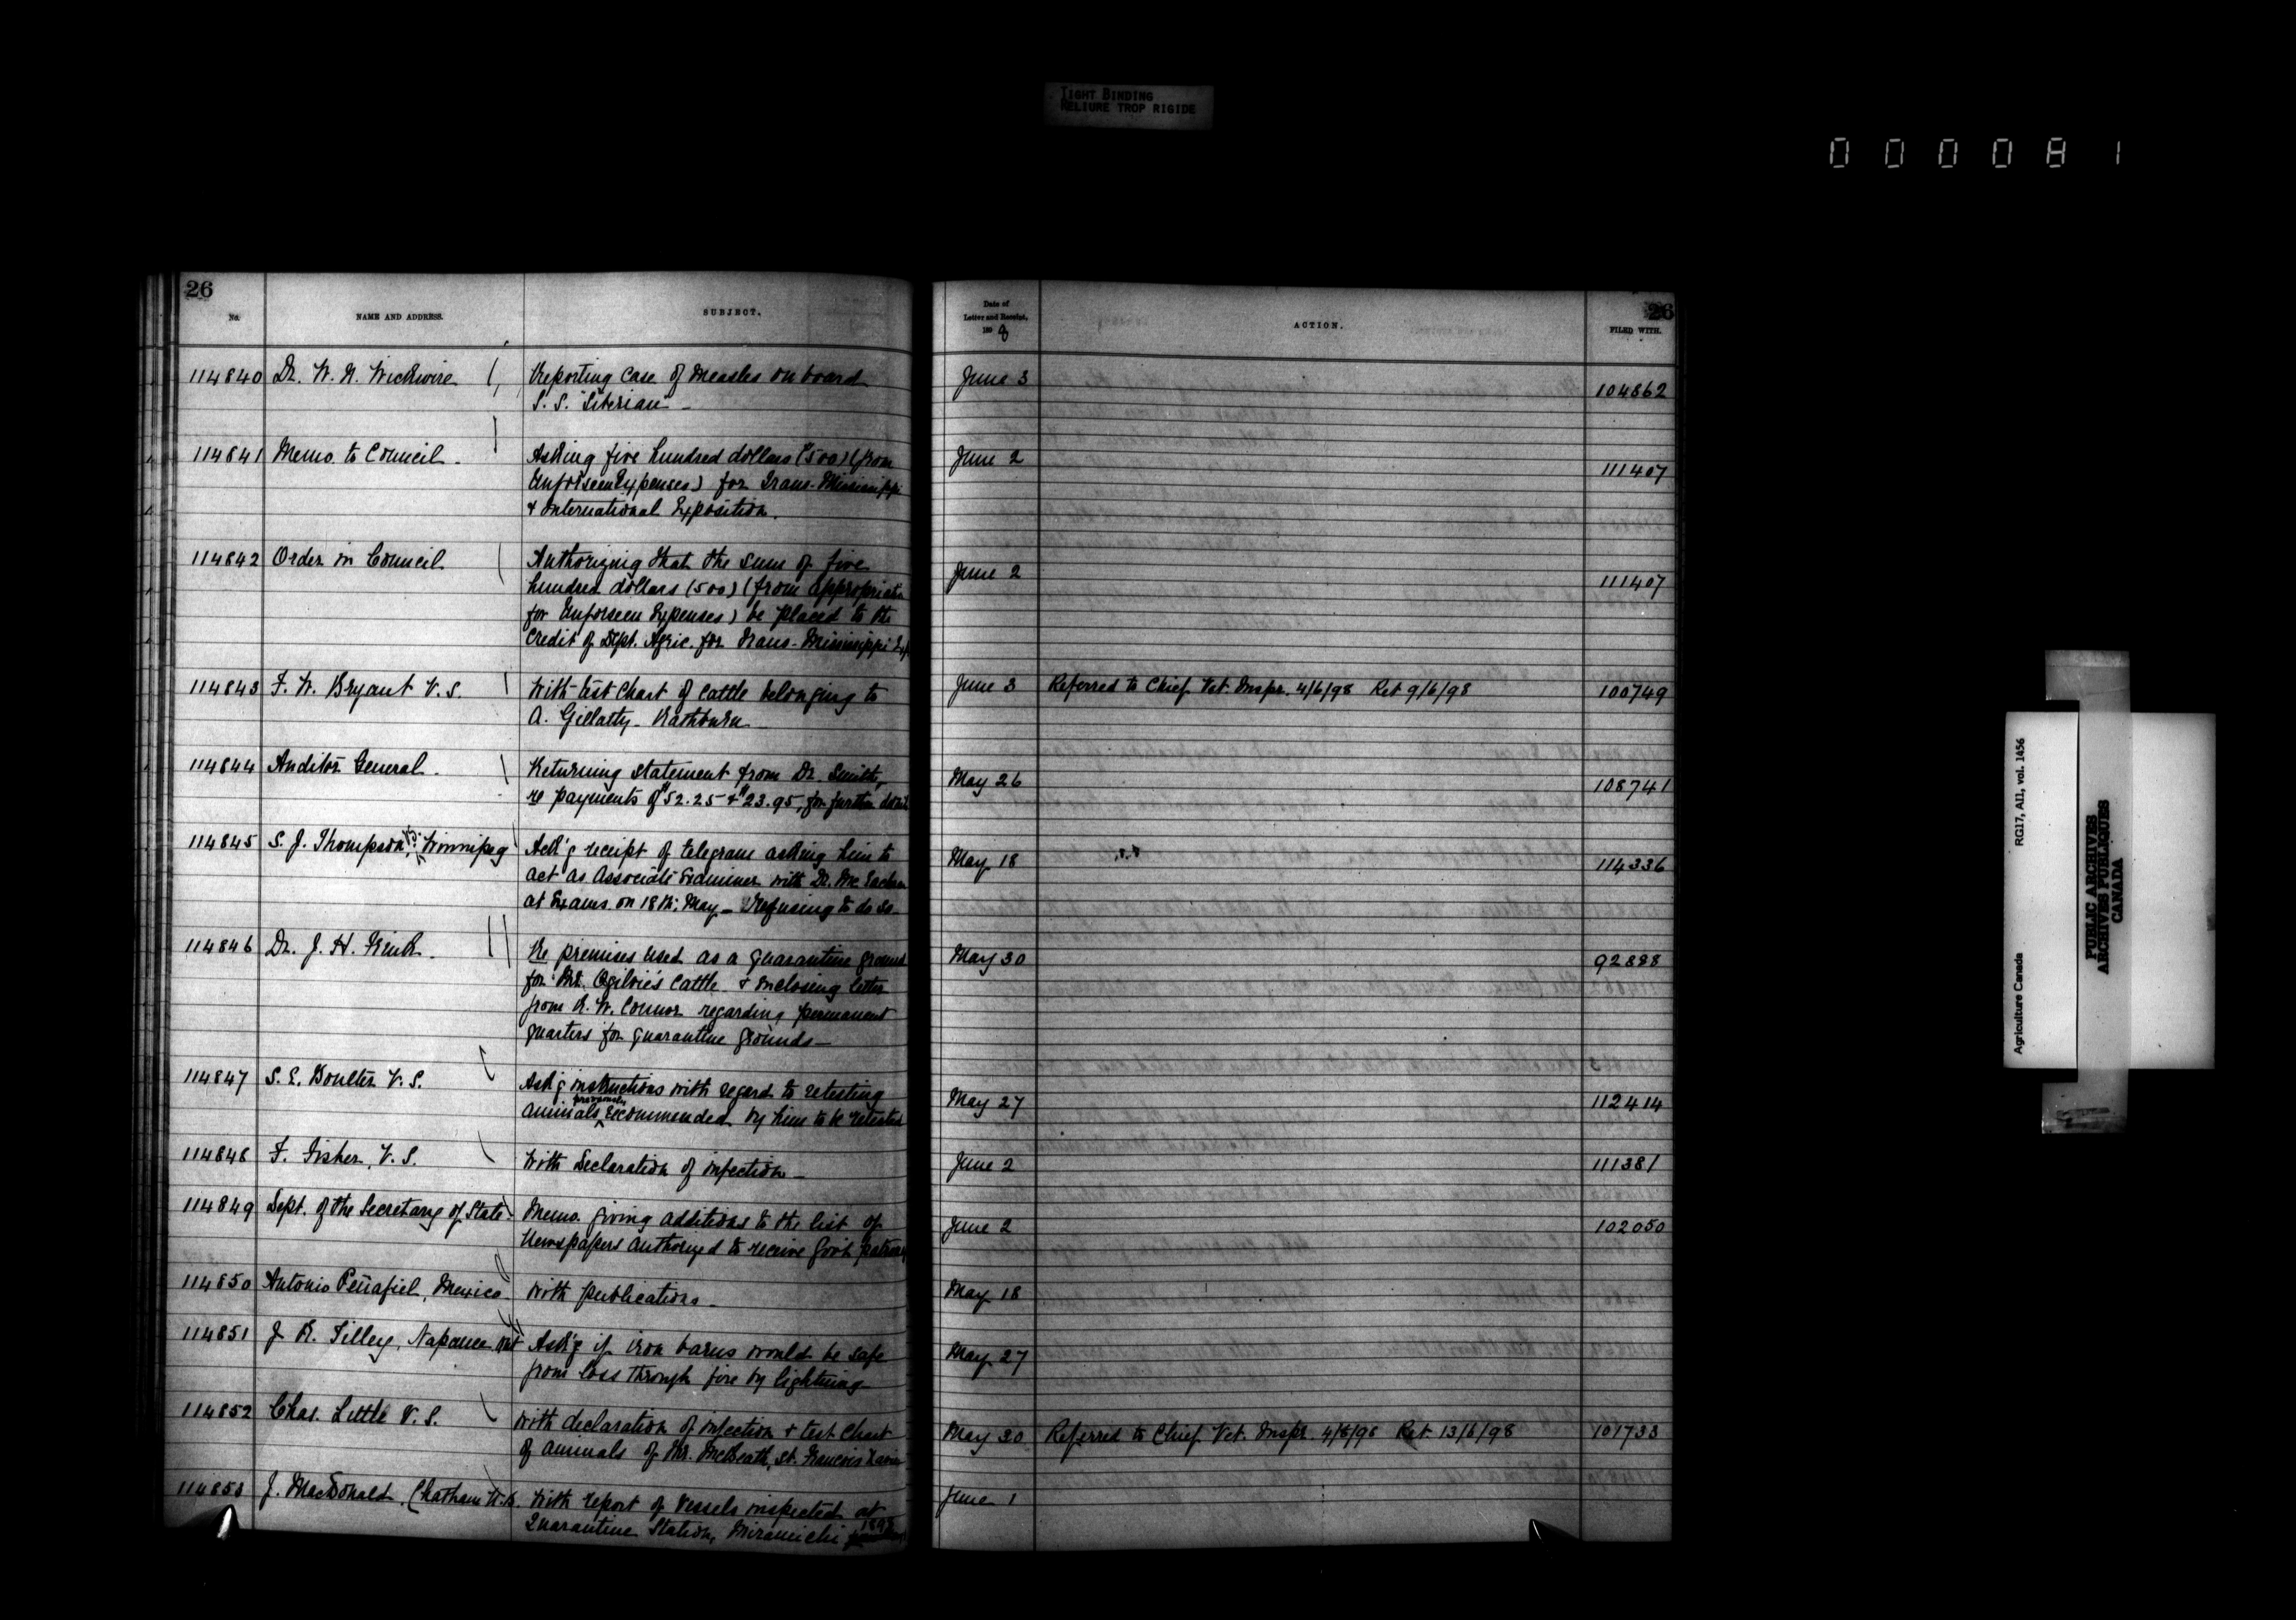 TIGHT BINDING
RELIURE TROP RIGIDE
000081
26
No.
NAME AND ADDRESS.
SUBJECT.
Date of
Letter and Receipt,
1898
ACTION.
26
FILED WITH.
114840 Dr. W. N. Wickwire Reporting case of measles on board June 3 104862
S. S. "Siberian" -
114841 Memo. to Council. Asking five hundred dollars ($500) (from June 2 111407
Unforseen Expenses) for Trans-Mississippi
& International Exposition.
114842 Order in Council Authorizing that the sum of five June 2 111407
hundred dollars (500) (from appropriation
for Unforseen Expenses) be placed to the
credit of Dept. Agric. for Trans-Mississippi Exp
114843 F. W. Bryant V.S. With test chart of cattle belonging to June 3 Referred to Chief Vet. Inspr. 4/6/98 Ret 9/6/98 100749
A. Gillatly - Rathburn
114844 Auditor General. Returning statement from Dr. Smith, May 26 108741
re payments of $52.25 & $23.95, for further
114845 S. J. Thompson, V.S. Winnipeg Ack'g receipt of telegram asking him to May 18 114336
act as associate Examiner with Dr. McEachran
at Exams. on 18th. May - Refusing to do so -
114846 Dr. J. H. Re premises used as a quarantine ground May 30 92888
for Mr. Ogilvie's cattle & inclosing letter
from R. W. Connor regarding permanent
quarters for quarantine grounds -
114847 S. E. Boulter V.S. Ask'g instructions with regard to retesting May 27 112414
previously
animals recommended by him to be retested
114848 F. Fisher, V.S. With Declaration of infection - June 2 111381
114849 Dept. of the Secretary of State. Memo. giving additions to the list of June 2 102050
Newspapers authorized to receive Gov't patronage
114850 Antonio Peñafiel, Mexico. With publications - May 18
114851 J. R. Tilley, Napanee Ont Ask'g if iron barns would be safe May 27
from loss through fire by lightning
114852 Chas. Little V.S. With declaration of infection & test chart May 30 Referred to Chief Vet. Inspr. 4/6/98 Ret 13/6/98 101733
of animals of Mr. McBeath, St. Francois Xavier
114853 J. MacDonald, Chatham N.B. With report of vessels inspected at June 1
Quarantine Station, Miramichi 1897
Agriculture Canada RG17, AII, vol. 1456
PUBLIC ARCHIVES
ARCHIVES PUBLIQUES
CANADA